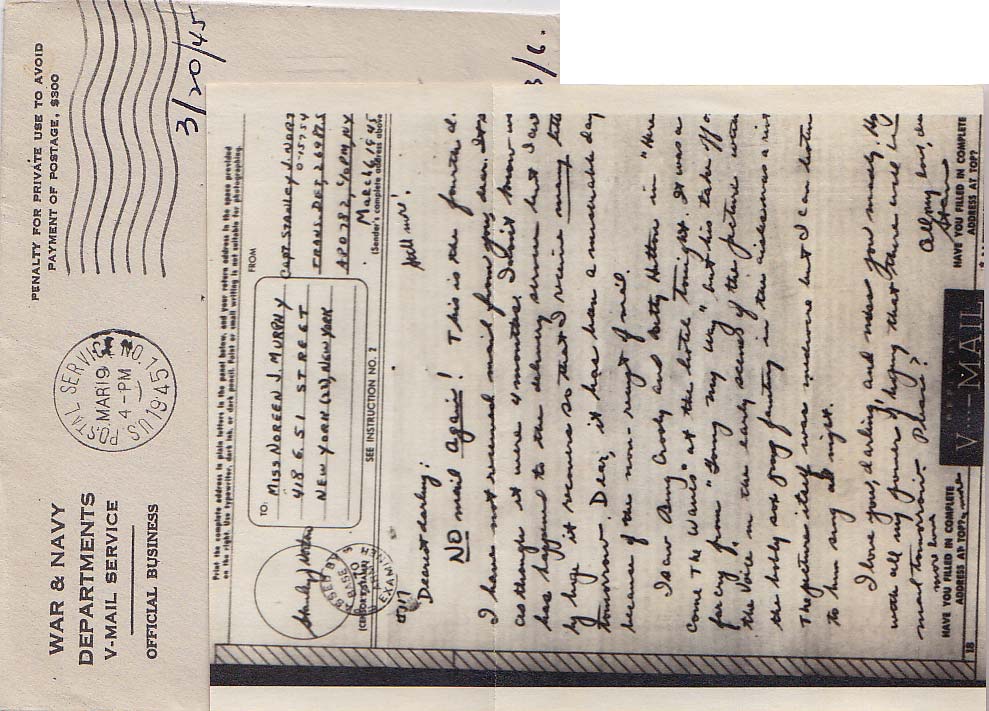 WAR & NAVY
DEPARTMENTS
V-MAIL SERVICE
OFFICIAL BUSINESS
U.S. POSTAL SERVICE NO. 1
MAR 19
4-PM
1945
PENALTY FOR PRIVATE USE TO AVOID
PAYMENT OF POSTAGE, $300
3/20/45
3/6.
Print the complete address in plain letters in the panel below, and your return address in the space provided
on the right. Use typewriter, dark ink, or dark pencil. Faint or small writing is not suitable for photographing.
TO:
MISS NOREEN J. MURPHY
418 E. 51 STREET
NEW YORK (22), NEW YORK
FROM
CAPT STANLEY J.
0-15754
TRANS. DET,
APO 782, % PM, NY
March 6, 1945
(Sender's complete address above)
PASSED BY
BASE
EXAMINER
(CENSOR'S STAMP)
SEE INSTRUCTION NO. 2
Dearest darling:
NO mail again! This is the fourth d.
I have not received mail from you, dear.
as though it were 4 months. I don't know w
has happen to the delivery service but I
by hope it recovers so that I receive many
tomorrow. Dear, it has been a miserable day
because of the non-receipt of mail.
I saw Bing Crosby and Betty Hutton in "Here
Come The Waves" at the hotel tonight. It was a
far cry from "Going my way" but his take off o
the Voice in the early scenes of the picture with
the bobby sox gang fainting in the aisles was a riot
The picture itself was mediocre but I can listen
to him sing all night.
I love you, darling and miss you madly.
with all my power I'm hoping that there will be
mail tomorrow. Please?
All my love, dear
Stan
more love
HAVE YOU FILLED IN COMPLETE
ADDRESS AT TOP?
V-MAIL
HAVE YOU FILLED IN COMPLETE
ADDRESS AT TOP?